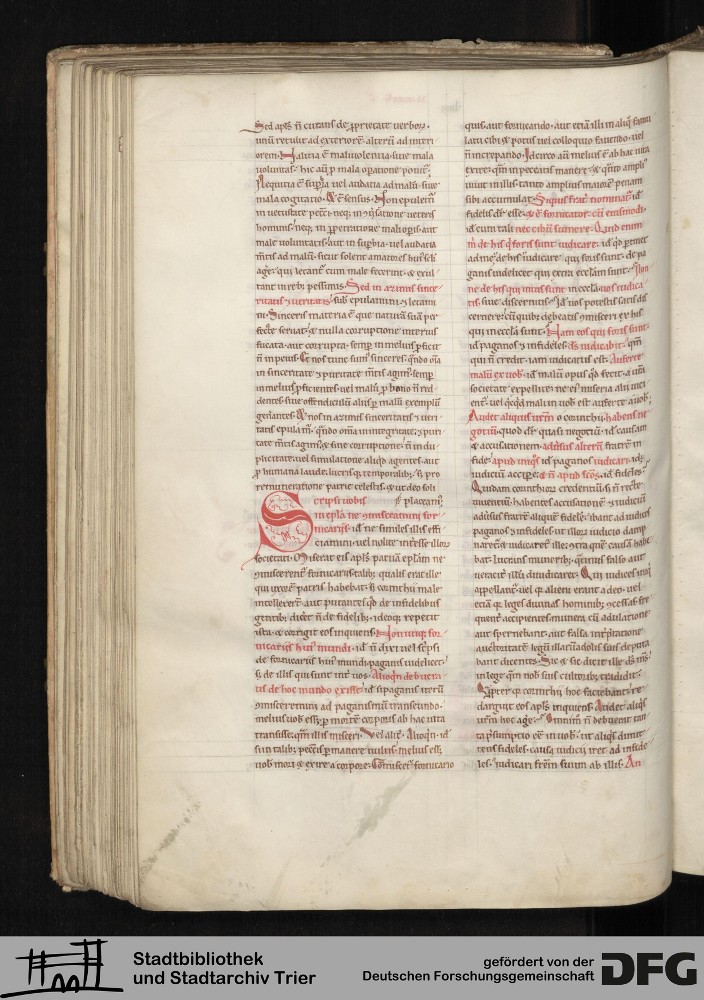 Sed apl's n̄ curans de ꝓprietate uerboꝝ.
unū retulit ad exteriorē. alterū ad interi
orem. Malitia ē maliuolentia. siue mala
uoluntas. hic aū ꝓ mala oꝑatione
Nequitia ē ... uel audatia ad malū. siue
mala cogitatio. & ē sensus. Non epulem̄
in uetustate pecc̄i. neq; in ... ueteris
hominis. neq; in ꝑpetratione mali oꝑis. aut
male uoluntatis. aut in suꝑbia. uel audatia
m̄tis ad malū. sicut solent amatores hui' sc̄li
age. qui letant̄ cum male fecerint. & exul
tant in reb; pessimis. Sed in azimis since
ritatis & ueritatis. sub. epulamini. & letam
ni. Sinceris materia ē que naturā suā ꝑ
fecte seruat. & nulla corruptione interius
fucata. aut corrupta. semꝑ in melius ꝓficit
n̄ in peius. Et nos tunc sum' sinceres. qn̄do om̄a
in sinceritate & puritate m̄tis agim'. semꝑ
in melius ꝓficientes. uel malū ꝓ bono n̄ red
dentes. siue offendiculū aliis ꝓ malū exemplū
gen̄antes. & nos in azimis sinceritatis & ueri
tatis epulam̄. qn̄do om̄a in integritate. & puri
tate m̄tis agim'. & sine corruptione. n̄ in du
plicitate uel simulatione aliqd agentes. aut
ꝓ humana laude. lucrisq; temporalib;. s; pro
remuneratione patrie celestis. & ut deo soli
Scripsi uobis placeam';
in epl'a. ne ɔmisceamini for
nicariis. id. ne similes illis effi
ciamini. uel nolite interesse illoꝝ
societati. Miserat eis apl's paruā epl'am ne
ɔmiscerent̄ fornicariis. talib; qualis erat ille
qui uxorē patris habebat. s; corinthii male
intellexerūt. aut putantes qd de infidelibus
gentib; dic̄et n̄ de fidelib;. ideoq; repetit
ista. & corrigit eos inquiens. Non utiq; for
nicariis hui' mundi. id. n̄ dixi uel sc̄psi
de fornicariis hui' mundi paganis uidelicet.
s; de illis qui sunt int̄ uos. Alioqn̄ debuera
tis de hoc mundo exisse. id. si paganis uerū
ɔmisceremini ad paganismū transeundo.
melius uob esset ꝑ mortē corporis ab hac uita
transisse. qm̄ illis misceri. Vel alit̄. Alioqn̄. id
si in talib; pecc̄is ꝑmanere uultis. melius ess;
uob mori. & exire a corpore. Com̄iscet̄ fornicario
quis. aut fornicando. aut etiā illi in aliq̄ famu
latu cibi & potus uel colloquio fauendo. uel
n̄ increpando. Idcirco aū melius ē ab hac uita
exire. qm̄ in peccatis manere. & qn̄to ampli'
uiuit in illis. tanto amplius maiorē penam
sibi accumulat. Si quis frat̄ nominat̄. id
fidelis d̄r esse. & ē fornicator. cū eiusmodi.
id. cum tali nec cibū sumere. Quid enim
m̄ de his q̄ foris sunt iudicare. id. qd ꝑtinet
ad me de his iudicare. qui foris sunt. de pa
ganis uidelicet qui extra eccl'am sunt. Non
ne de his qui intus sunt in eccl'a. uos iudica
tis. siue discernitis. Id nos potestis satis dis
cernere. cū quib; debeatis ɔmisceri ex his
qui in eccl'a sunt. Nam eos qui foris sunt.
id. paganos & infideles. d's iudicabit. qm̄
qui n̄ credit iam iudicatus est. Auferte
malū ex uob. id. malū opus qd fecit. a ur̄a
societate expellite. ne ei' miseria alii uici
ent̄. uel qcqd mali in uob est auferte a uob;
Audet aliquis ur̄m o corinthii. habens ne
gotiū. quod d̄r quasi negotiū. id. causam
& accusationem. aduersus alterū. fratrē in
fide. apud iniq̄s. id. paganos iudicari. id.
iudiciū accipe. & n̄ apud sc̄os. id. fideles.
Quidam corinthioꝝ credentiū. si n̄ recte
uiuentiū. habentes accusationē. & iudiciū
aduersus fratrē aliquē fidelē. ibant ad iudices
paganos & infideles. ut illoꝝ iudicio
narent̄. & iudicarēt̄ illi. ɔtra quē causā habe
bat. lucrans munerib;. qm̄uis falso aut
ueracit̄ illū diiudicaret. Qui iudices iniq̄
appellant̄. uel q̄ alieni erant a deo. uel
etiā q̄ leges diuinas hominib; ɔcessas fre
quent̄ accipientes munera cū adulatione
aut spernebant. aut falsa int̄pretatione
auctoritatē legū illariū a dolis suis deputa
bant dicentes. Sic & sic dicit ille d's n̄r
in lege. qm̄ nob suis cultorib; tradidit.
Qꝑpter q̄ corinthii hoc faciebant. re
darguit eos apl's inquiens. Audet aliq̄s
ur̄m hoc age. Omnim̄ n̄ debuerat tan
ta p̄sumptio eē in uob. ut aliq̄s dimit
tens fideles. causa iudicii iret ad infide
les. iudicari fr̄em suum ab illis. An
Stadtbibliothek
und Stadtarchiv Trier
gefördert von der
Deutschen Forschungsgemeinschaft
DFG